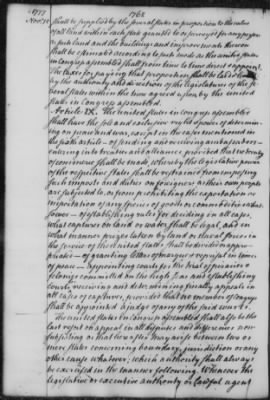 1777 1768
Nov. 15
shall be supplied by the several states in proportion to the value
of all land within each state granted to or surveyed for any person
as such land and the buildings and improvements thereon
shall be estimated according to such mode as the united states
in congress assembled shall from time to time direct & appoint.
The taxes for paying that proportion shall be laid &
by the authority and direction of the legislatures of the se-
veral states within the time agreed upon by the united
states in congress assembled.
Article IX. The united states in congress assembled
shall have the sole and exclusive right & power of determin-
ing on peace and war, except in the cases mentioned in
the sixth article - of sending and receiving ambassadors -
entering into treaties and alliances, provided that no treaty
of commerce shall be made, whereby the legislative power
of the respective states shall be restrained from imposing
such imposts and duties on foreigners as their own people
are subjected to, or from prohibiting the exportation or
importation of any species of goods or commodities what-
soever - of establishing rules for deciding in all cases,
what captures on land or water shall be legal, and in
what manner prizes taken by land or naval forces in
the service of the united states shall be divided or appro-
priated - of granting letters of marque & reprisal in times
of peace - appointing courts for the trial of piracies &
felonies committed on the high seas and establishing
courts for receiving and determining finally appeals in
all cases of captures, provided that no member of congress
shall be appointed a judge of any of the said courts.
The united states in congress assembled shall also be the
last resort on appeal in all disputes and differences now
subsisting or that hereafter may arise between two or
more states concerning boundary, jurisdiction or any
other cause whatever; which authority shall always
be exercised in the manner following. Whenever the
legislative or executive authority or lawful agent